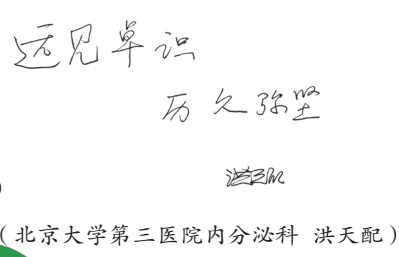 远见卓识
历久弥坚
洪天配
（北京大学第三医院内分泌科 洪天配）